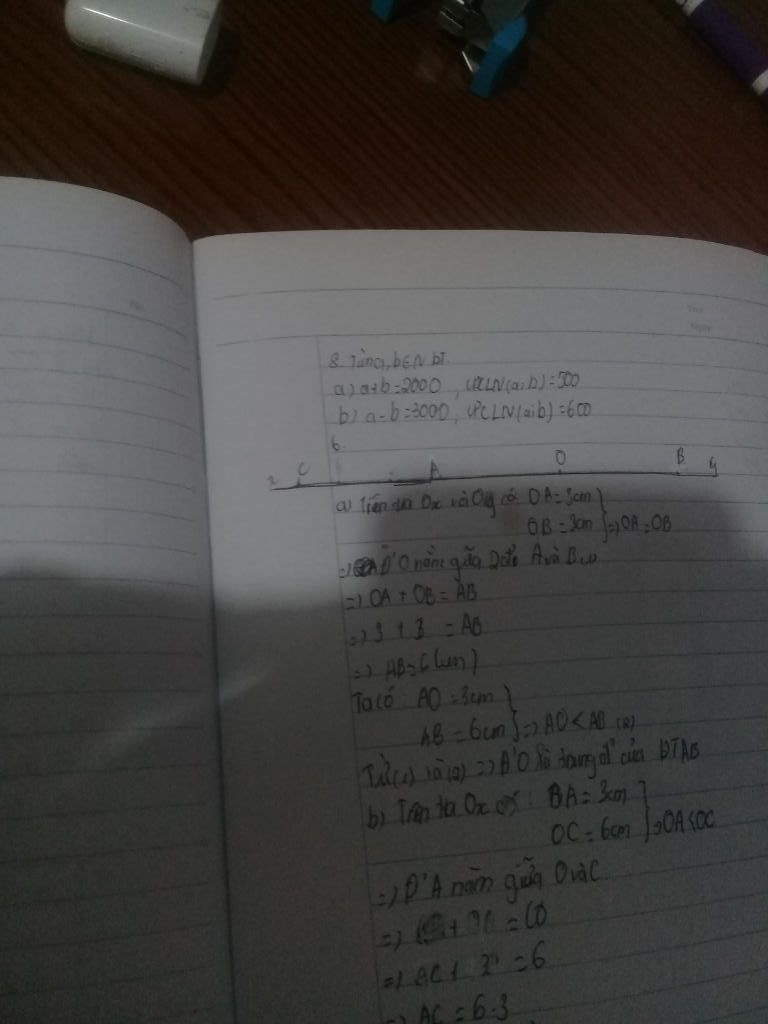 8. Tìm a, b ∈ N bt.
a) a+b=2000, ƯCLN(a; b)=500
b) a-b=3000, ƯCLN(a;b)=600
6.
x C A O B y
a) Trên tia Ox và Oy có OA=3cm
OB=3cm } => OA=OB
=> Đ' O nằm giữa 2 đ' A và B (1)
=> OA + OB = AB
=> 3 + 3 = AB
=> AB=6 (cm)
Ta có: AO =3cm }
AB = 6cm } => AO < AB (2)
Từ (1) và (2) => Đ' O là trung đ' của ĐTAB
b) Trên tia Ox có: OA=3cm
OC=6cm } => OA<OC
=> Đ' A nằm giữa O và C
=> + = CO
=> AC + 3 = 6
=> AC = 6-3